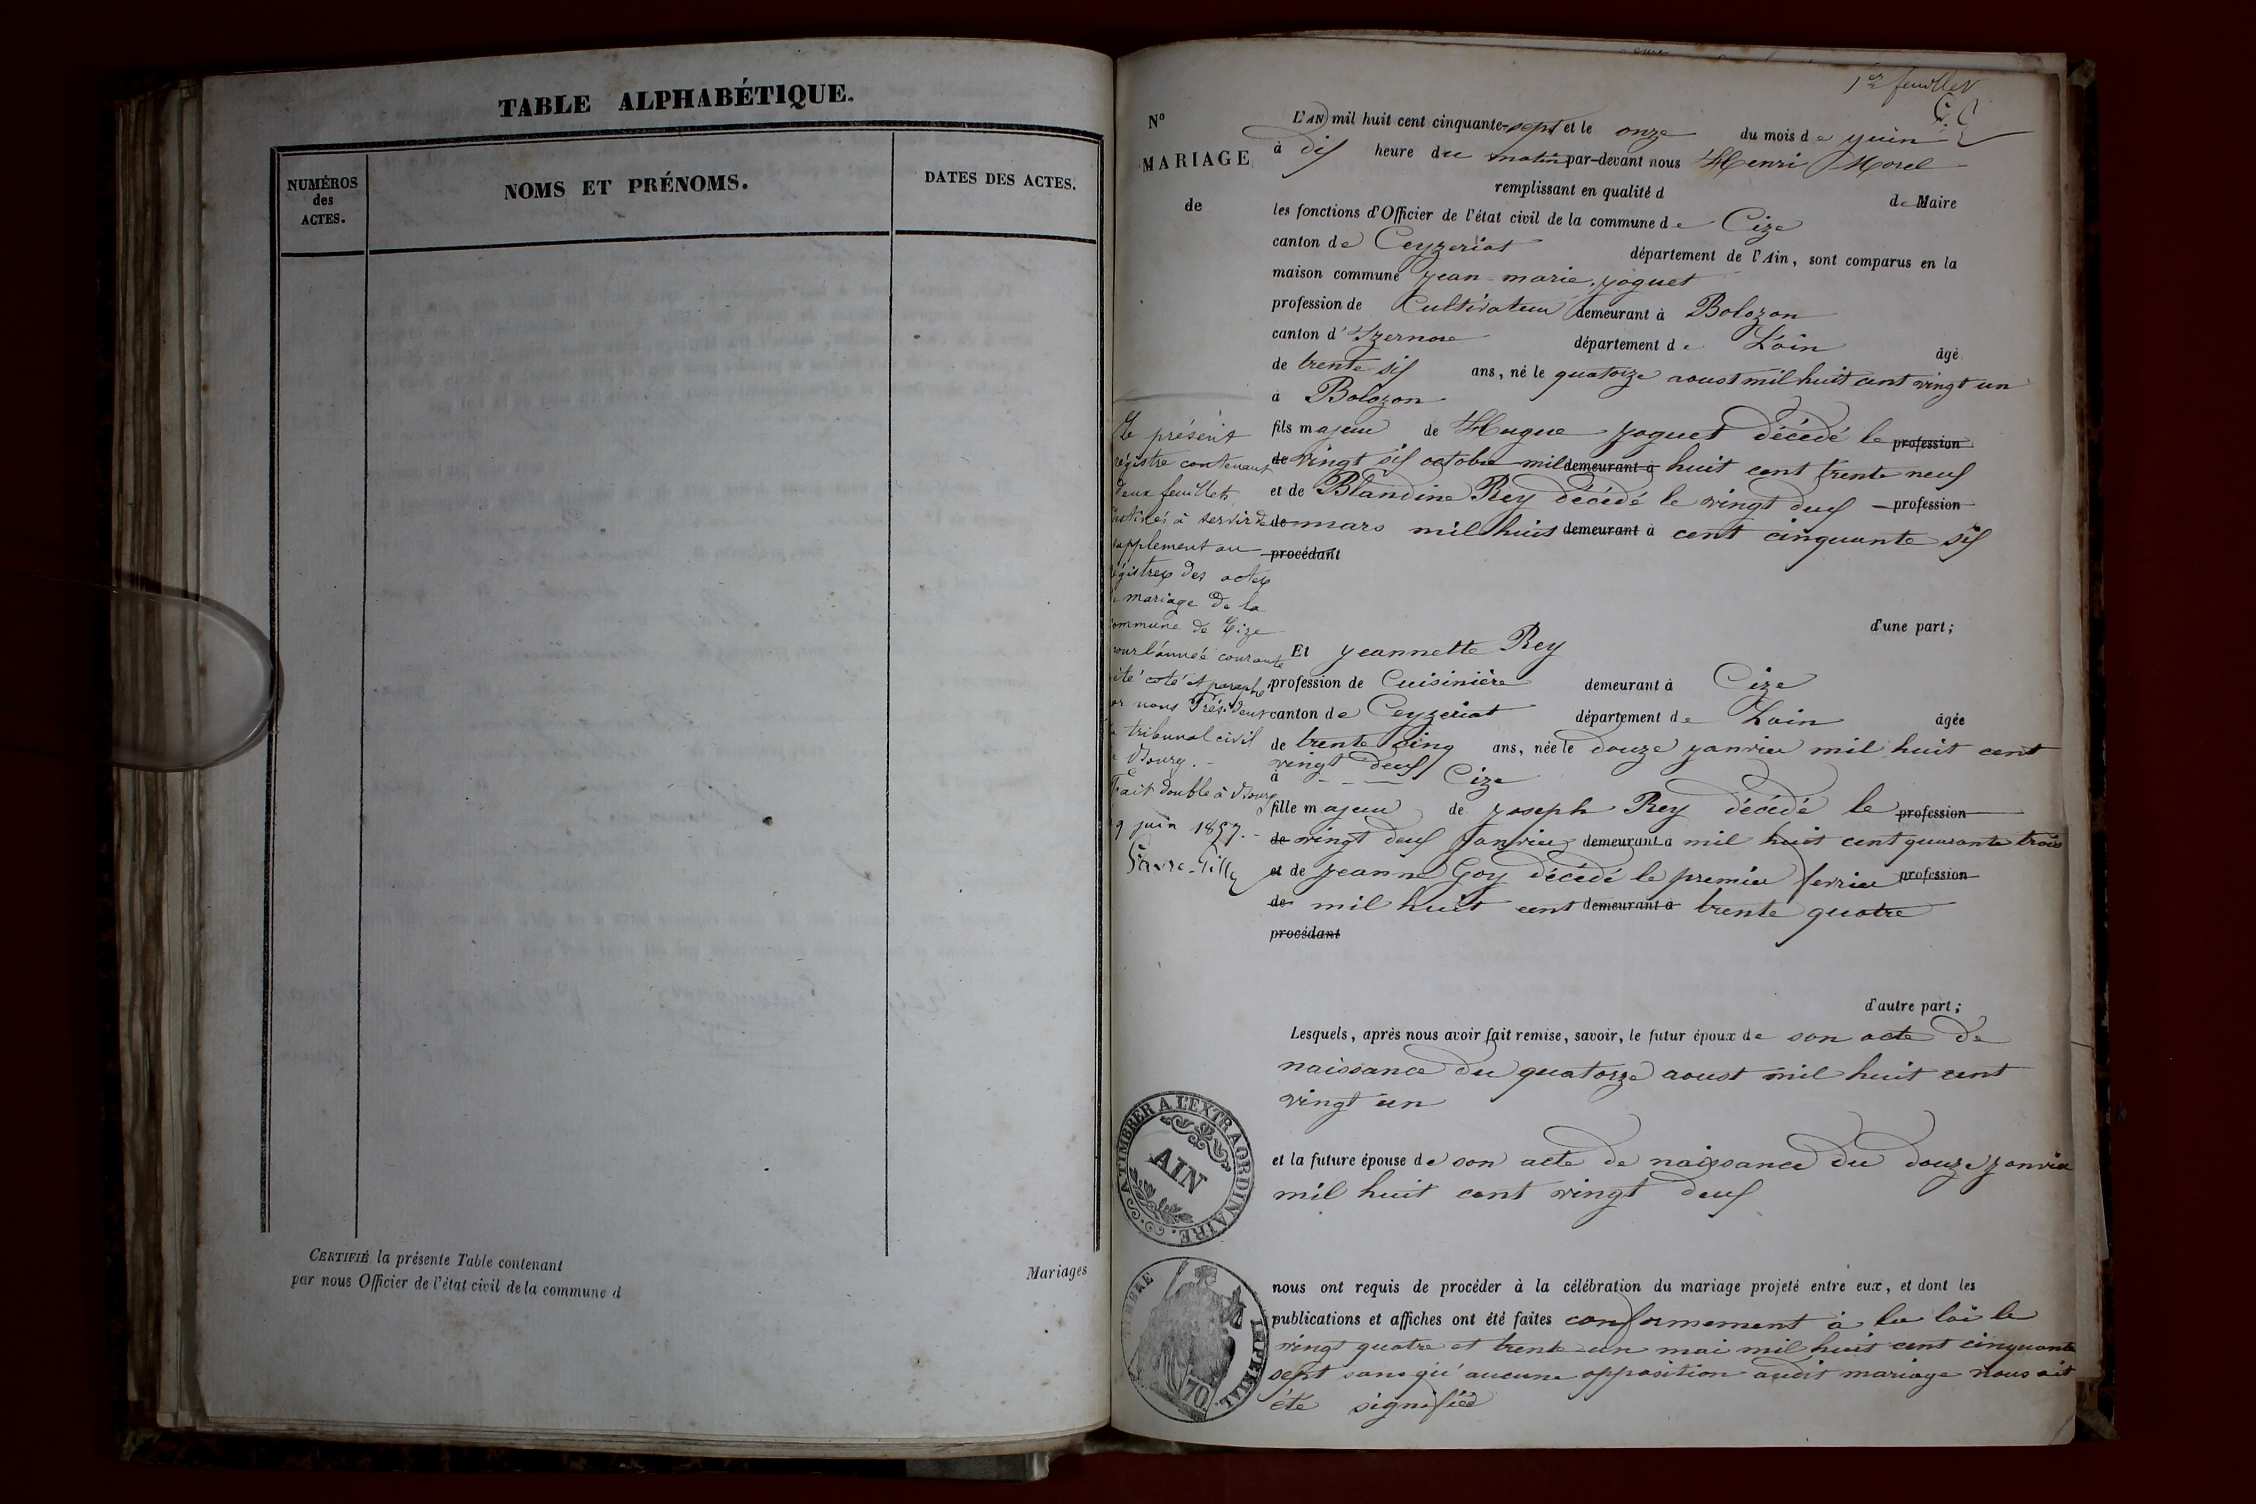 TABLE ALPHABÉTIQUE.
NUMÉROS
des
ACTES.
NOMS ET PRÉNOMS.
DATES DES ACTES.
CERTIFIÉ la présente Table contenant
Mariages
par nous Officier de l'état civil de la commune d
1er feuillet
No
MARIAGE
de
L'AN mil huit cent cinquante-sept et le onze du mois de juin
à dix heure du matin par-devant nous Henri Morel
remplissant en qualité d de Maire
les fonctions d'Officier de l'état civil de la commune de Cize
canton de Ceyzeriat département de l'Ain, sont comparus en la
maison commune Jean-marie joguet
profession de Cultivateur demeurant à Bolozon
canton d'Izernore département de L'ain âgé
de trente six ans, né le quatorze aoust mil huit cent vingt un
à Bolozon
fils majeur de Hugue joguet décédé le profession
de vingt six octobre mil demeurant à huit cent trente neuf
et de Blandine Rey décédé le vingt deux profession
de mars mil huit demeurant à cent cinquante six
procédant
d'une part;
Et jeannette Rey
profession de Cuisinière demeurant à Cize
canton de Ceyzeriat département de Lain âgée
de trente cinq ans, née le douze janvier mil huit cent
vingt deux
à Cize
fille majeur de joseph Rey décédé le profession
de vingt deux janvier demeurant à mil huit cent quarante trois
et de jeanne Goy décédé le premier fevrier profession
de mil huit cent demeurant à trente quatre
procédant
d'autre part;
Lesquels, après nous avoir fait remise, savoir, le futur époux de son acte de
naissance du quatorze aoust mil huit cent
vingt un
et la future épouse de son acte de naissance du douze janvier
mil huit cent vingt deux
nous ont requis de procéder à la célébration du mariage projeté entre eux, et dont les
publications et affiches ont été faites conformement à la loi le
vingt quatre et trente un mai mil huit cent cinquante
sept sans qu'aucune opposition audit mariage nous ait
été signifiée
Le présent
régistre contenant
deux feuillets
destinés à servir de
supplement au
régistres des actes
de mariage de la
commune de Cize
pour l'année courante
été coté et paraphé
par nous Président
du tribunal civil
de Bourg.
Fait double à Bourg
9 juin 1857.
A TIMBRER A L'EXTRAORDINAIRE.
AIN
TIMBRE IMPERIAL
70